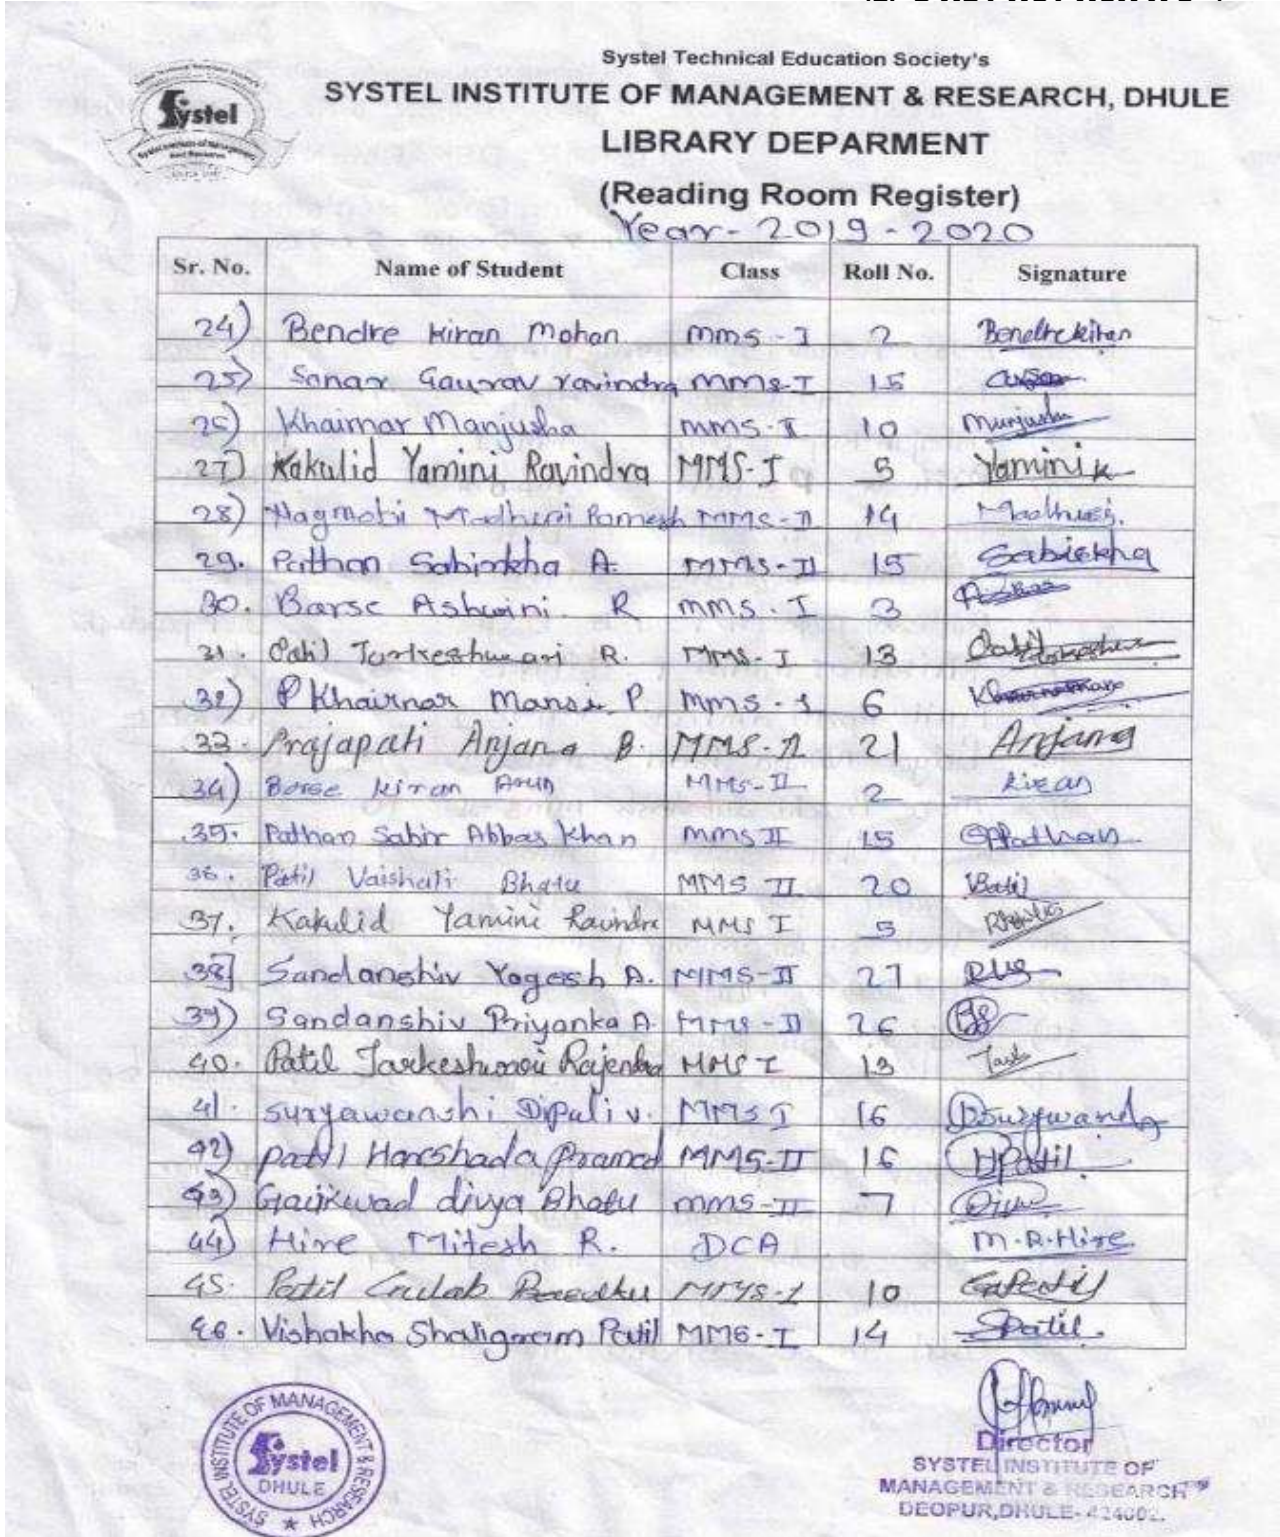 Systel Technical Education Society's
SYSTEL INSTITUTE OF MANAGEMENT & RESEARCH, DHULE
LIBRARY DEPARMENT
(Reading Room Register)
Year - 2019 - 2020
Systel
Sr. No. Name of Student Class Roll No. Signature
24) Bendre Kiran Mohan MMS - I 2 Bendre kiran
25) Sonar Gaurav ravindra MMS-I 15
26) Khairnar Manjusha MMS-I 10 Manjusha
27) Kakulid Yamini Ravindra MMS-I 5 Yamini k
28) Nagmoti Madhuri Ramesh MMS-II 14 Madhuri.
29. Pathan Sabirkha A. MMS-II 15 Sabirkha
30. Barse Ashwini. R MMS - I 3
31. Patil Tarkeshwari R. MMS-I 13 Patil
32) P Khairnar Mansi P. MMS - I 6
33. Prajapati Anjana B. MMS-II 21 Anjana
34) Borse Kiran Arun MMS-II 2 Kiran
35. Pathan Sabir Abbas Khan MMS II 15 Pathan
36. Patil Vaishali Bhatu MMS II 20 VPatil
37. Kakulid Yamini Ravindra MMS I 5
38] Sandanshiv Yogesh A. MMS-II 27
39) Sandanshiv Priyanka A. MMS-II 26
40. Patil Tarkeshwari Rajendra MMS I 13
41. Suryawanshi Dipali v. MMS I 16
42) Patil Harshada Pramod MMS-II 16 HPatil.
43) Gaikwad divya Bhatu MMS-II 7
44) Hire Mitesh R. DCA M.R.Hire
45. Patil Gulab MMS-I 10 GPatil
46. Vishakha Shaligram Patil MMS-I 14 SPatil.
SYSTEL INSTITUTE OF MANAGEMENT & RESEARCH
Systel
DHULE
Director
SYSTEL INSTITUTE OF
MANAGEMENT & RESEARCH
DEOPUR, DHULE- 424002.